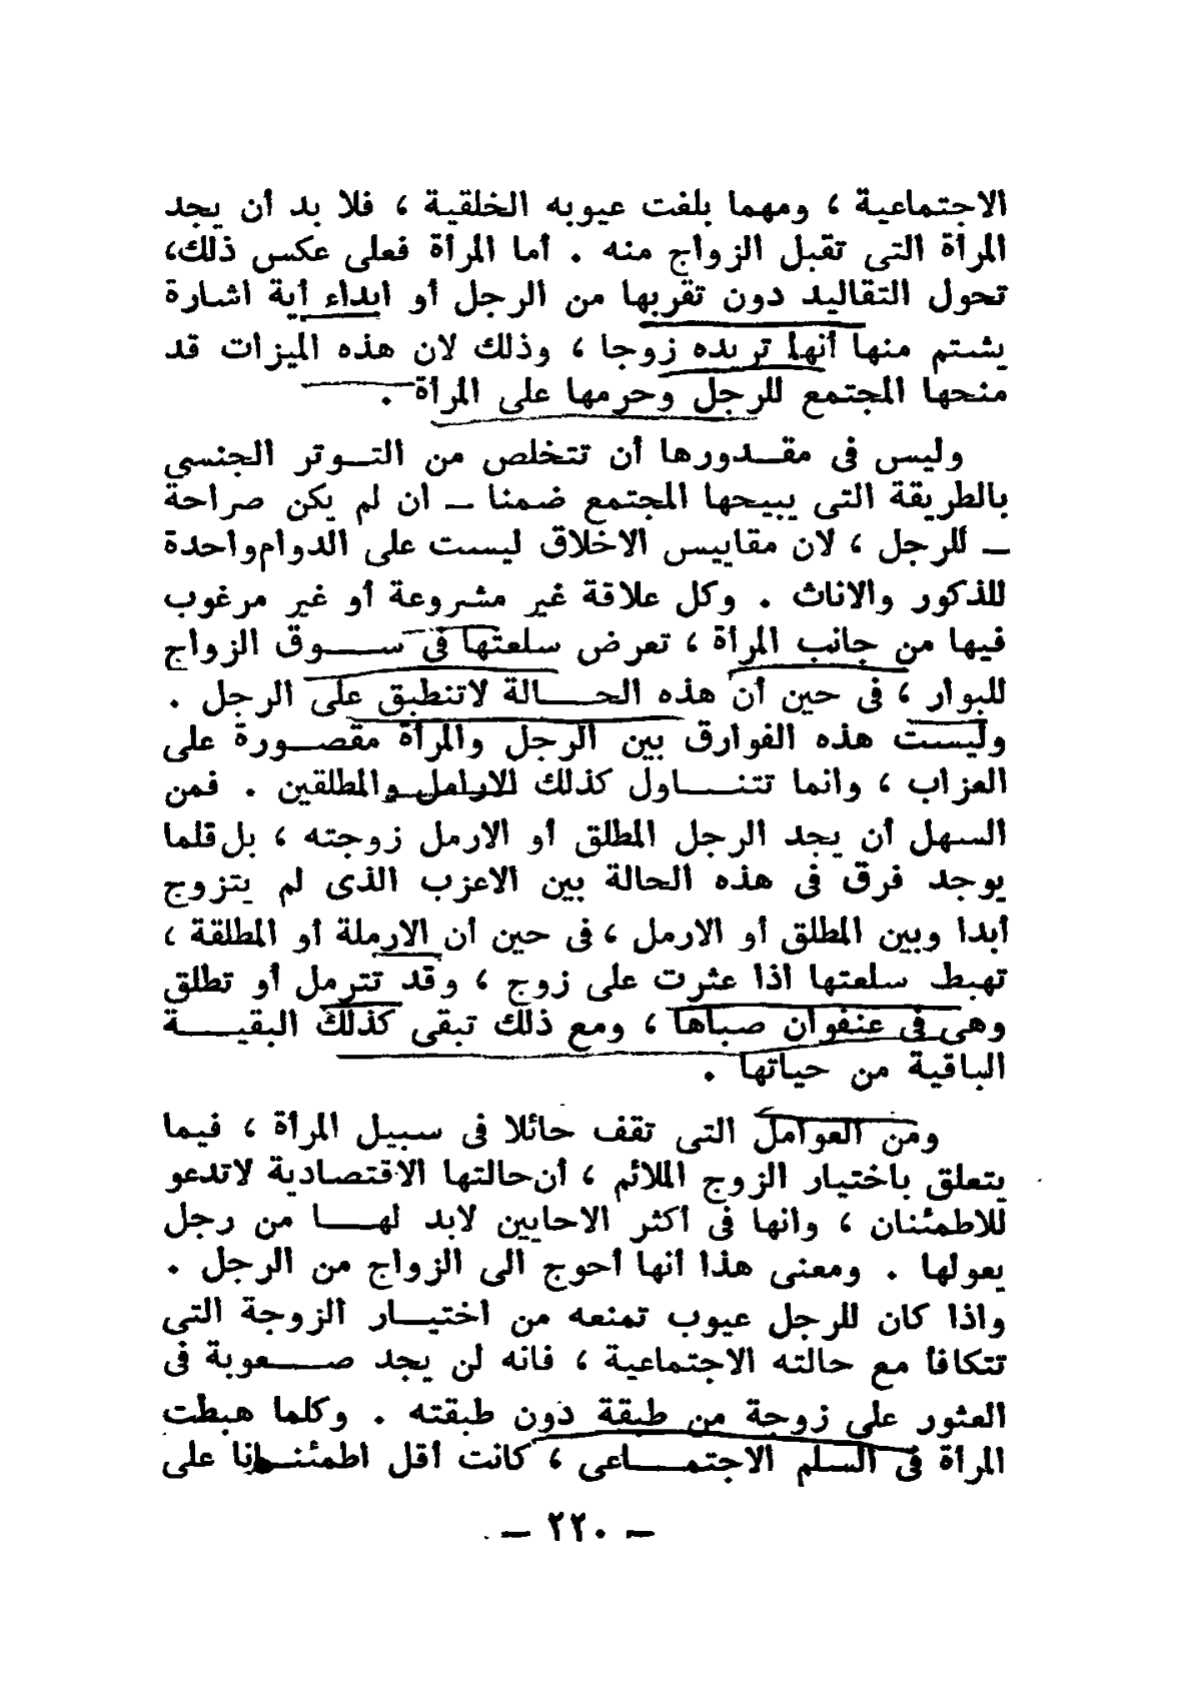 الاجتماعية ، ومهما بلغت عيوبه الخلقية ، فلا بد أن يجد
المرأة التى تقبل الزواج منه . أما المرأة فعلى عكس ذلك،
تحول التقاليد دون تقربها من الرجل أو ابداء أية اشارة
يشتم منها أنها تريده زوجا ، وذلك لان هذه الميزات قد
منحها المجتمع للرجل وحرمها على المرأة .
وليس فى مقـدورها أن تتخلص من التـوتر الجنسى
بالطريقة التى يبيحها المجتمع ضمنا ــ ان لم يكن صراحة
ــ للرجل ، لان مقاييس الاخلاق ليست على الدوام واحدة
للذكور والاناث . وكل علاقة غير مشروعة أو غير مرغوب
فيها من جانب المرأة ، تعرض سلعتها فى ســوق الزواج
للبوار ، فى حين أن هذه الحــالة لاتنطبق على الرجل .
وليست هذه الفوارق بين الرجل والمرأة مقصـورة على
العزاب ، وانما تتنــاول كذلك الارامل والمطلقين . فمن
السهل أن يجد الرجل المطلق أو الارمل زوجته ، بل قلما
يوجد فرق فى هذه الحالة بين الاعزب الذى لم يتزوج
أبدا وبين المطلق أو الارمل ، فى حين أن الارملة أو المطلقة ،
تهبط سلعتها اذا عثرت على زوج ، وقد تترمل أو تطلق
وهى فى عنفوان صباها ، ومع ذلك تبقى كذلك البقيـــة
الباقية من حياتها .
ومن العوامل التى تقف حائلا فى سبيل المرأة ، فيما
يتعلق باختيار الزوج الملائم ، أن حالتها الاقتصادية لاتدعو
للاطمئنان ، وانها فى أكثر الاحايين لابد لهــا من رجل
يعولها . ومعنى هذا أنها أحوج الى الزواج من الرجل .
واذا كان للرجل عيوب تمنعه من اختيـار الزوجة التى
تتكافأ مع حالته الاجتماعية ، فانه لن يجد صــعوبة فى
العثور على زوجة من طبقة دون طبقته . وكلما هبطت
المرأة فى السلم الاجتمــاعى ، كانت أقل اطمئنـانا على
ــ ٢٢٠ ــ